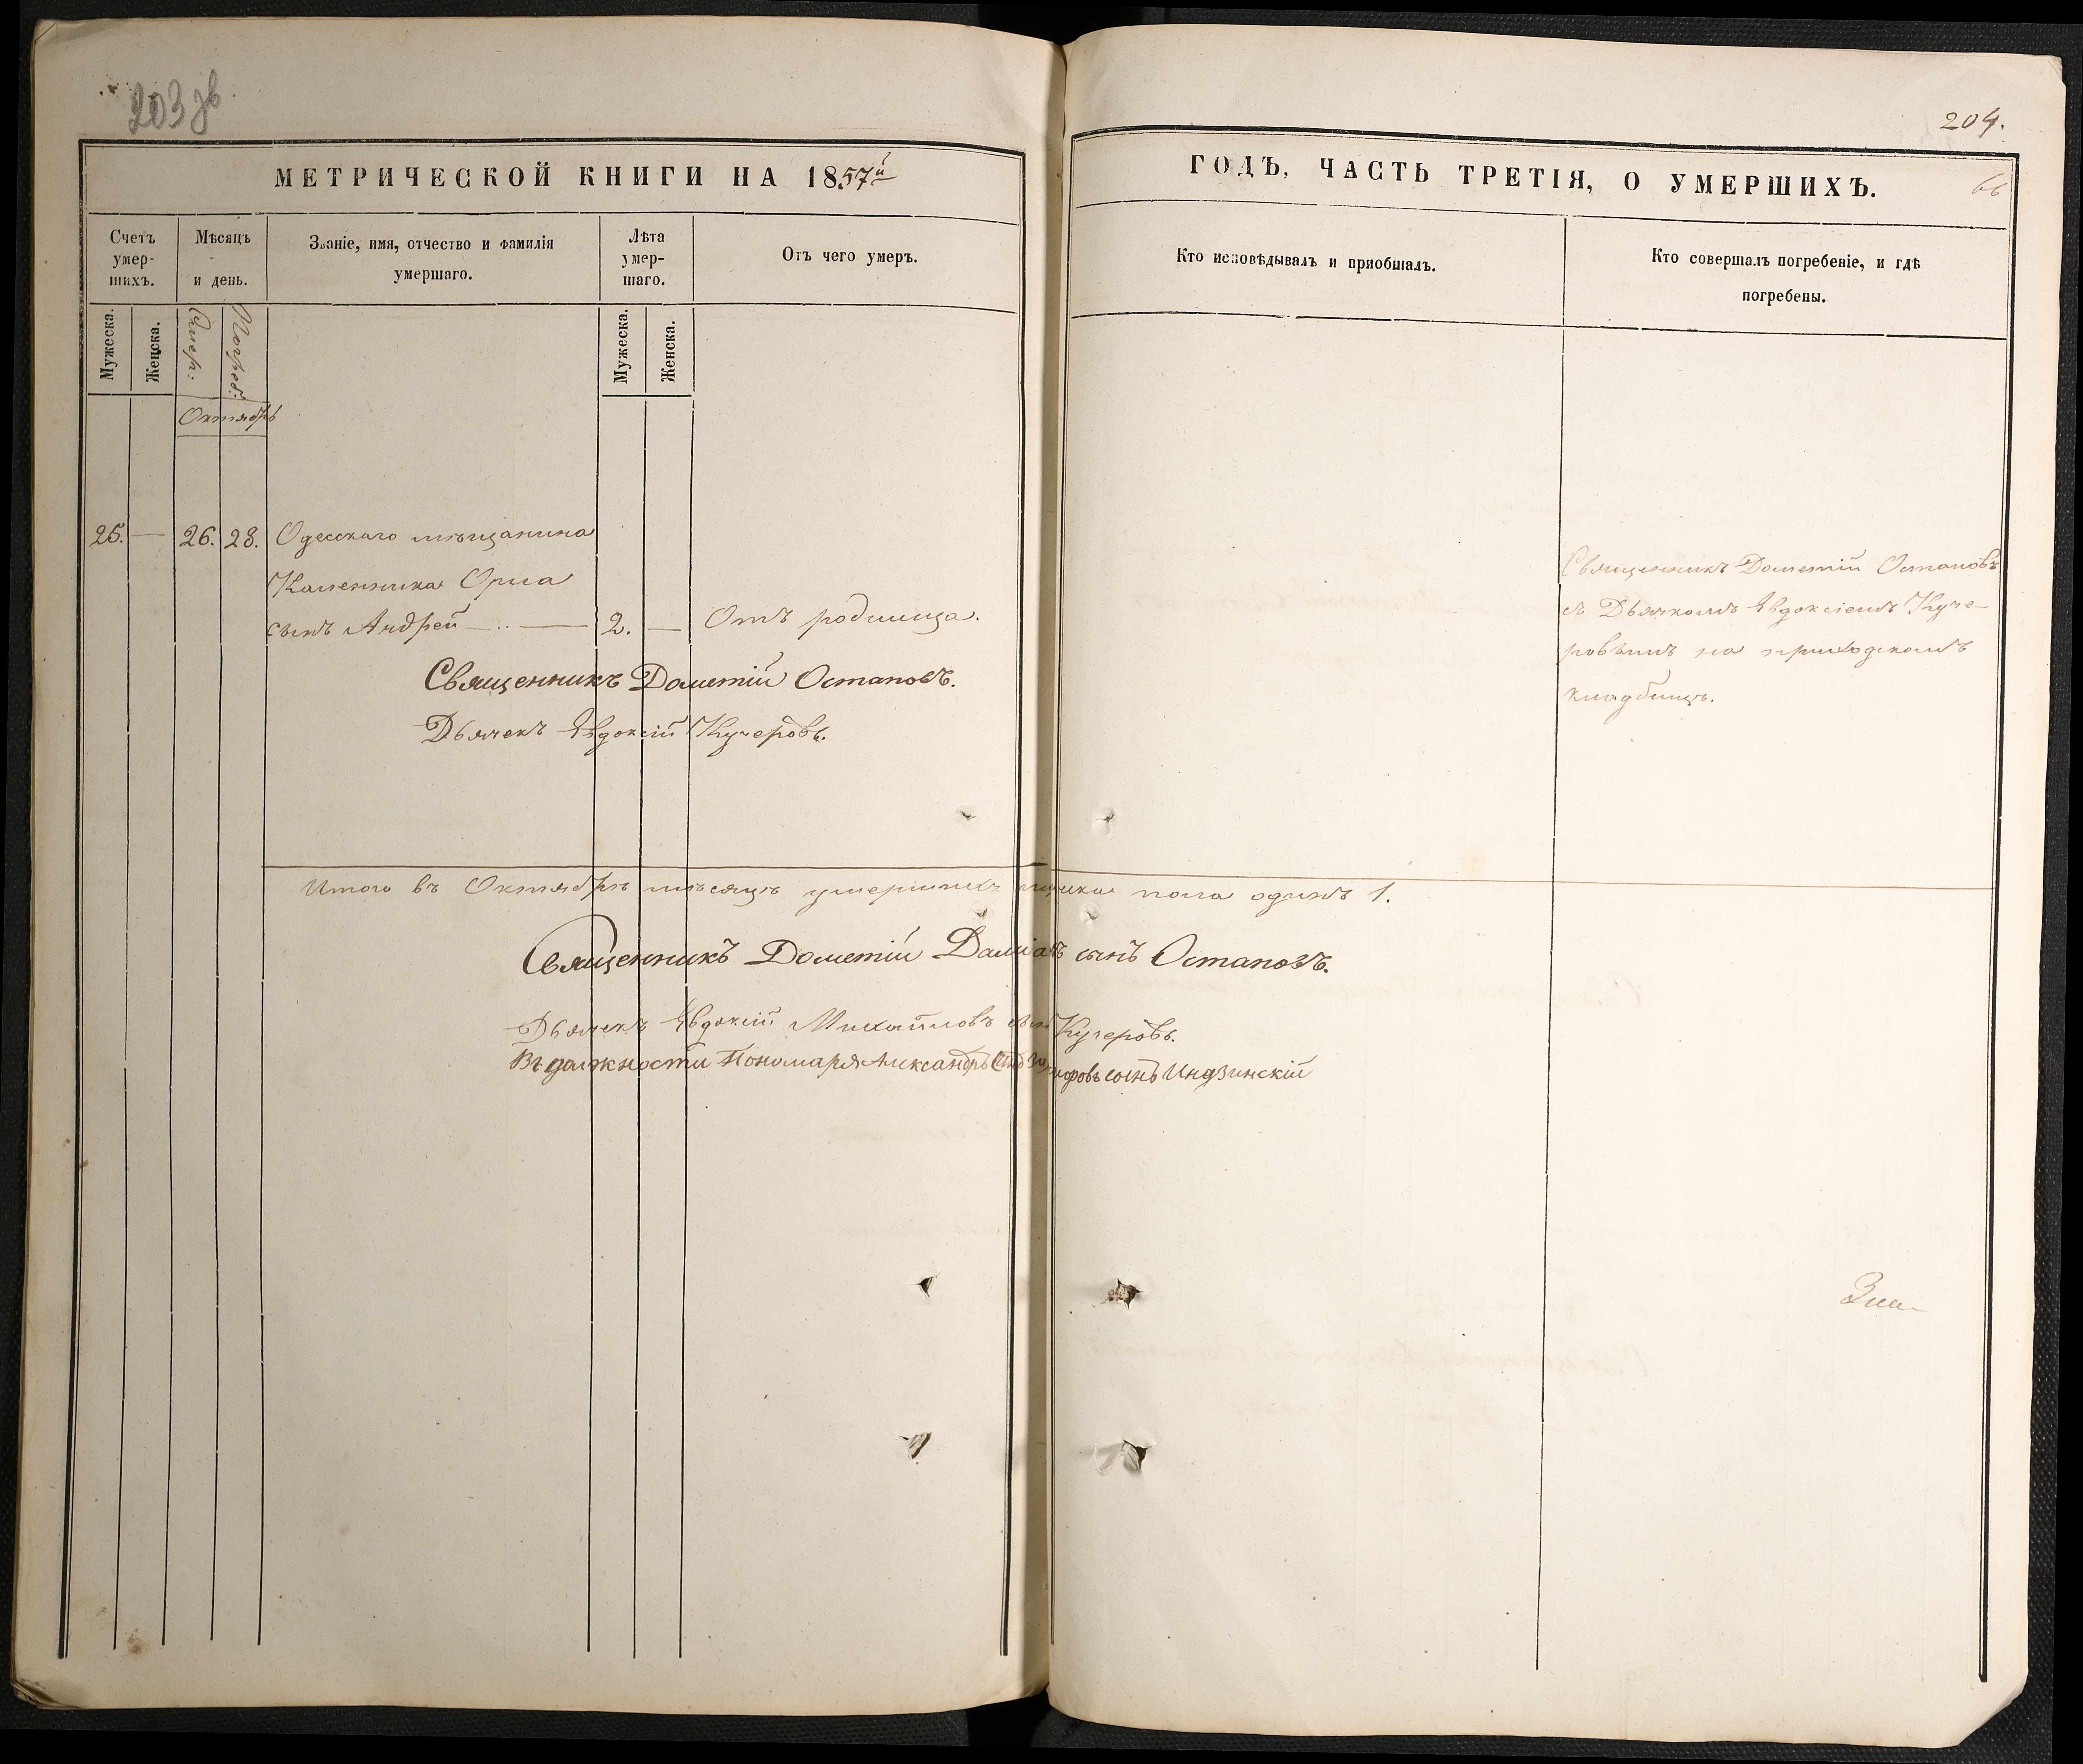 203 зв.
204.
66
МЕТРИЧЕСКОЙ КНИГИ НА 1857й
ГОДЪ, ЧАСТЬ ТРЕТІЯ, О УМЕРШИХЪ.
Счетъ умер-шихъ.
Мужеска.
Женска.
Мѣсяцъ и день.
Умер:
Погреб:
Званіе, имя, отчество и фамилія умершаго.
Лѣта умер-шаго.
Мужеска.
Женска.
Отъ чего умеръ.
Кто исповѣдывалъ и пріобщалъ.
Кто совершалъ погребеніе, и гдѣ погребены.
Октябрь
25. — 26. 28. Одесскаго мѣщанина
Каленника
сынъ Андрей — 2. — Отъ родимца.
Священникъ Дометій Остаповъ
съ Дьячкомъ Евдокіемъ Куче-
ровымъ на приходскомъ
кладбищѣ.
Священникъ Дометій Остаповъ.
Дьячекъ Евдокій Кучеровъ.
Итого въ Октябрѣ мѣсяцѣ умершихъ мужеска пола одинъ 1.
Священникъ Дометій Даміановъ сынъ Остаповъ.
Дьячекъ Евдокій Михайловъ сынъ Кучеровъ.
Въ должности Пономаря Александръ сынъ Индзинскій